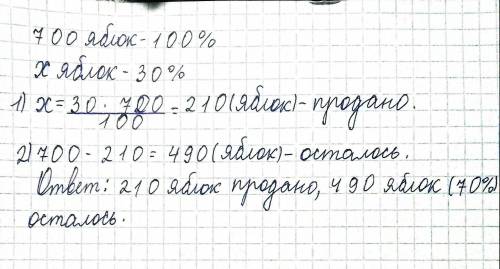 700 яблок - 100%
х яблок - 30%
1) х = 30 · 700 / 100 = 210 (яблок) - продано.
2) 700 - 210 = 490 (яблок) - осталось.
Ответ: 210 яблок продано, 490 яблок (70%)
осталось.